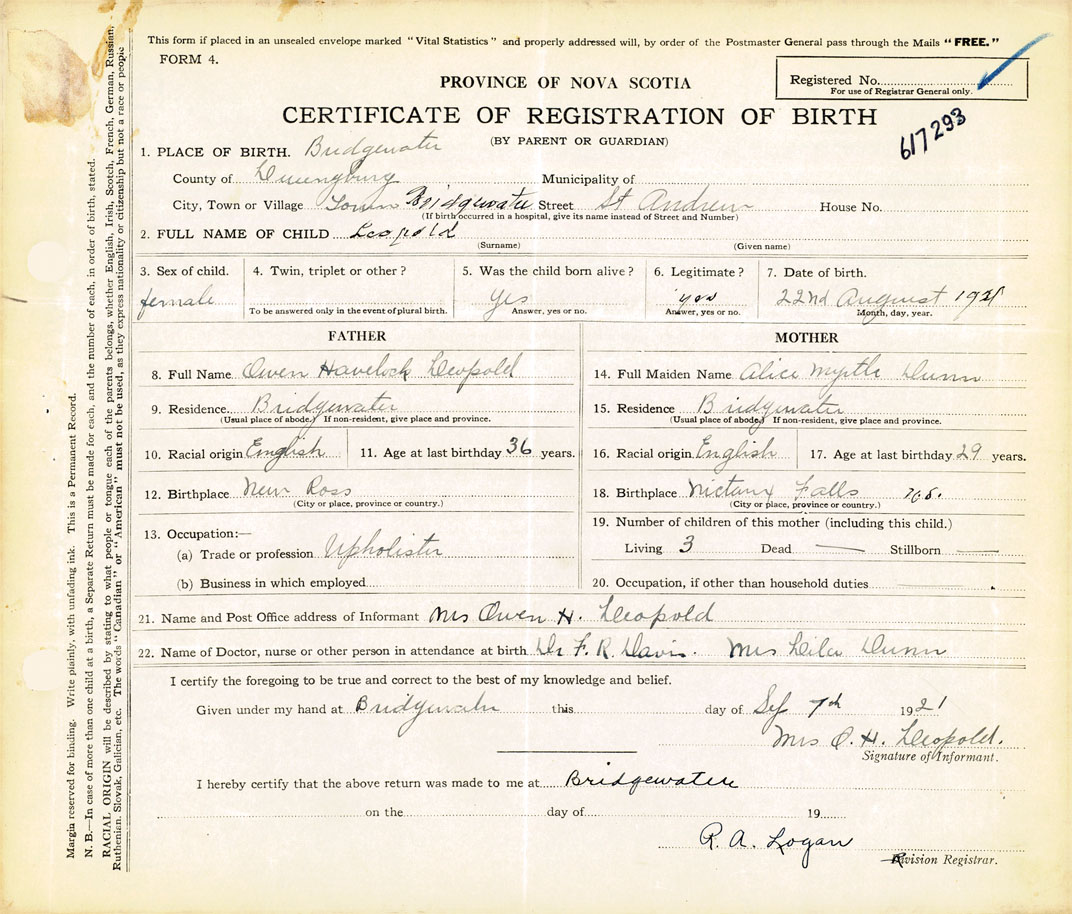 This form if placed in an unsealed envelope marked "Vital Statistics" and properly addressed will, by order of the Postmaster General pass through the Mails "FREE."
FORM 4.
Registered No.
For use of Registrar General only.
PROVINCE OF NOVA SCOTIA
CERTIFICATE OF REGISTRATION OF BIRTH
(BY PARENT OR GUARDIAN)
617293
1. PLACE OF BIRTH. Bridgewater
County of Lunengburg Municipality of
City, Town or Village Town Bridgewater Street St Andrew House No.
(If birth occurred in a hospital, give its name instead of Street and Number)
2. FULL NAME OF CHILD Leopold
(Surname) (Given name)
3. Sex of child. 4. Twin, triplet or other? 5. Was the child born alive? 6. Legitimate? 7. Date of birth.
female Yes yes 22nd August 1921
To be answered only in the event of plural birth. Answer, yes or no. Answer, yes or no. Month, day, year.
FATHER
8. Full Name Owen Havelock Leopold
9. Residence. Bridgewater
(Usual place of abode.) If non-resident, give place and province.
10. Racial origin English 11. Age at last birthday 36 years.
12. Birthplace New Ross
(City or place, province or country.)
13. Occupation:—
(a) Trade or profession Upholister
(b) Business in which employed
MOTHER
14. Full Maiden Name Alice Myrtle Dunn
15. Residence Bridgewater
(Usual place of abode.) If non-resident, give place and province.
16. Racial origin English 17. Age at last birthday 29 years.
18. Birthplace Nictaux Falls N.S.
(City or place, province or country.)
19. Number of children of this mother (including this child.)
Living 3 Dead — Stillborn —
20. Occupation, if other than household duties
21. Name and Post Office address of Informant Mrs Owen H. Leopold
22. Name of Doctor, nurse or other person in attendance at birth Dr F. R. Davis. Mrs Lila Dunn
I certify the foregoing to be true and correct to the best of my knowledge and belief.
Given under my hand at Bridgewater this day of Sep 7th 1921
Mrs O. H. Leopold.
Signature of Informant.
I hereby certify that the above return was made to me at Bridgewater
on the day of 19
R. A. Logan
Division Registrar.
Margin reserved for binding. Write plainly, with unfading ink. This is a Permanent Record.
N. B.—In case of more than one child at a birth, a Separate Return must be made for each, and the number of each, in order of birth, stated.
RACIAL ORIGIN will be described by stating to what people or tongue each of the parents belongs, whether English, Irish, Scotch, French, German, Russian,
Ruthenian, Slovak, Galician, etc. The words "Canadian" or "American" must not be used, as they express nationality or citizenship but not a race or people